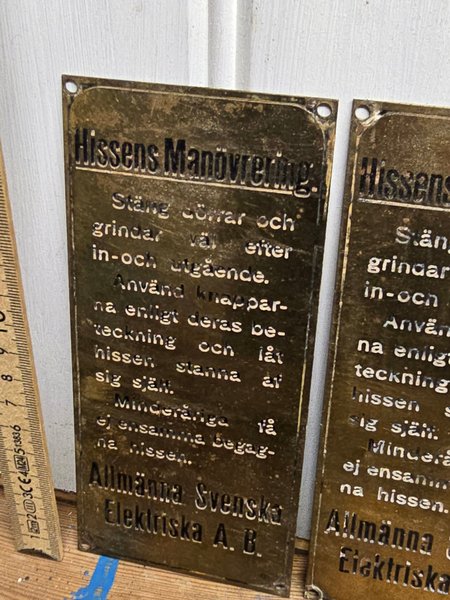 Hissens Manövrering.
Stäng dörrar och
grindar väl efter
in-och utgående.
Använd knappar-
na enligt deras be-
teckning och låt
hissen stanna af
sig själf.
Minderåriga få
ej ensamma begag-
na hissen.
Allmänna Svenska
Elektriska A. B.
Hissens
Stäng
grindar
in-och
Använd
na enligt
teckning
hissen s
sig själf.
Minder
ej ensamm
na hissen.
Allmänna
Elektriska
7 8 9 10